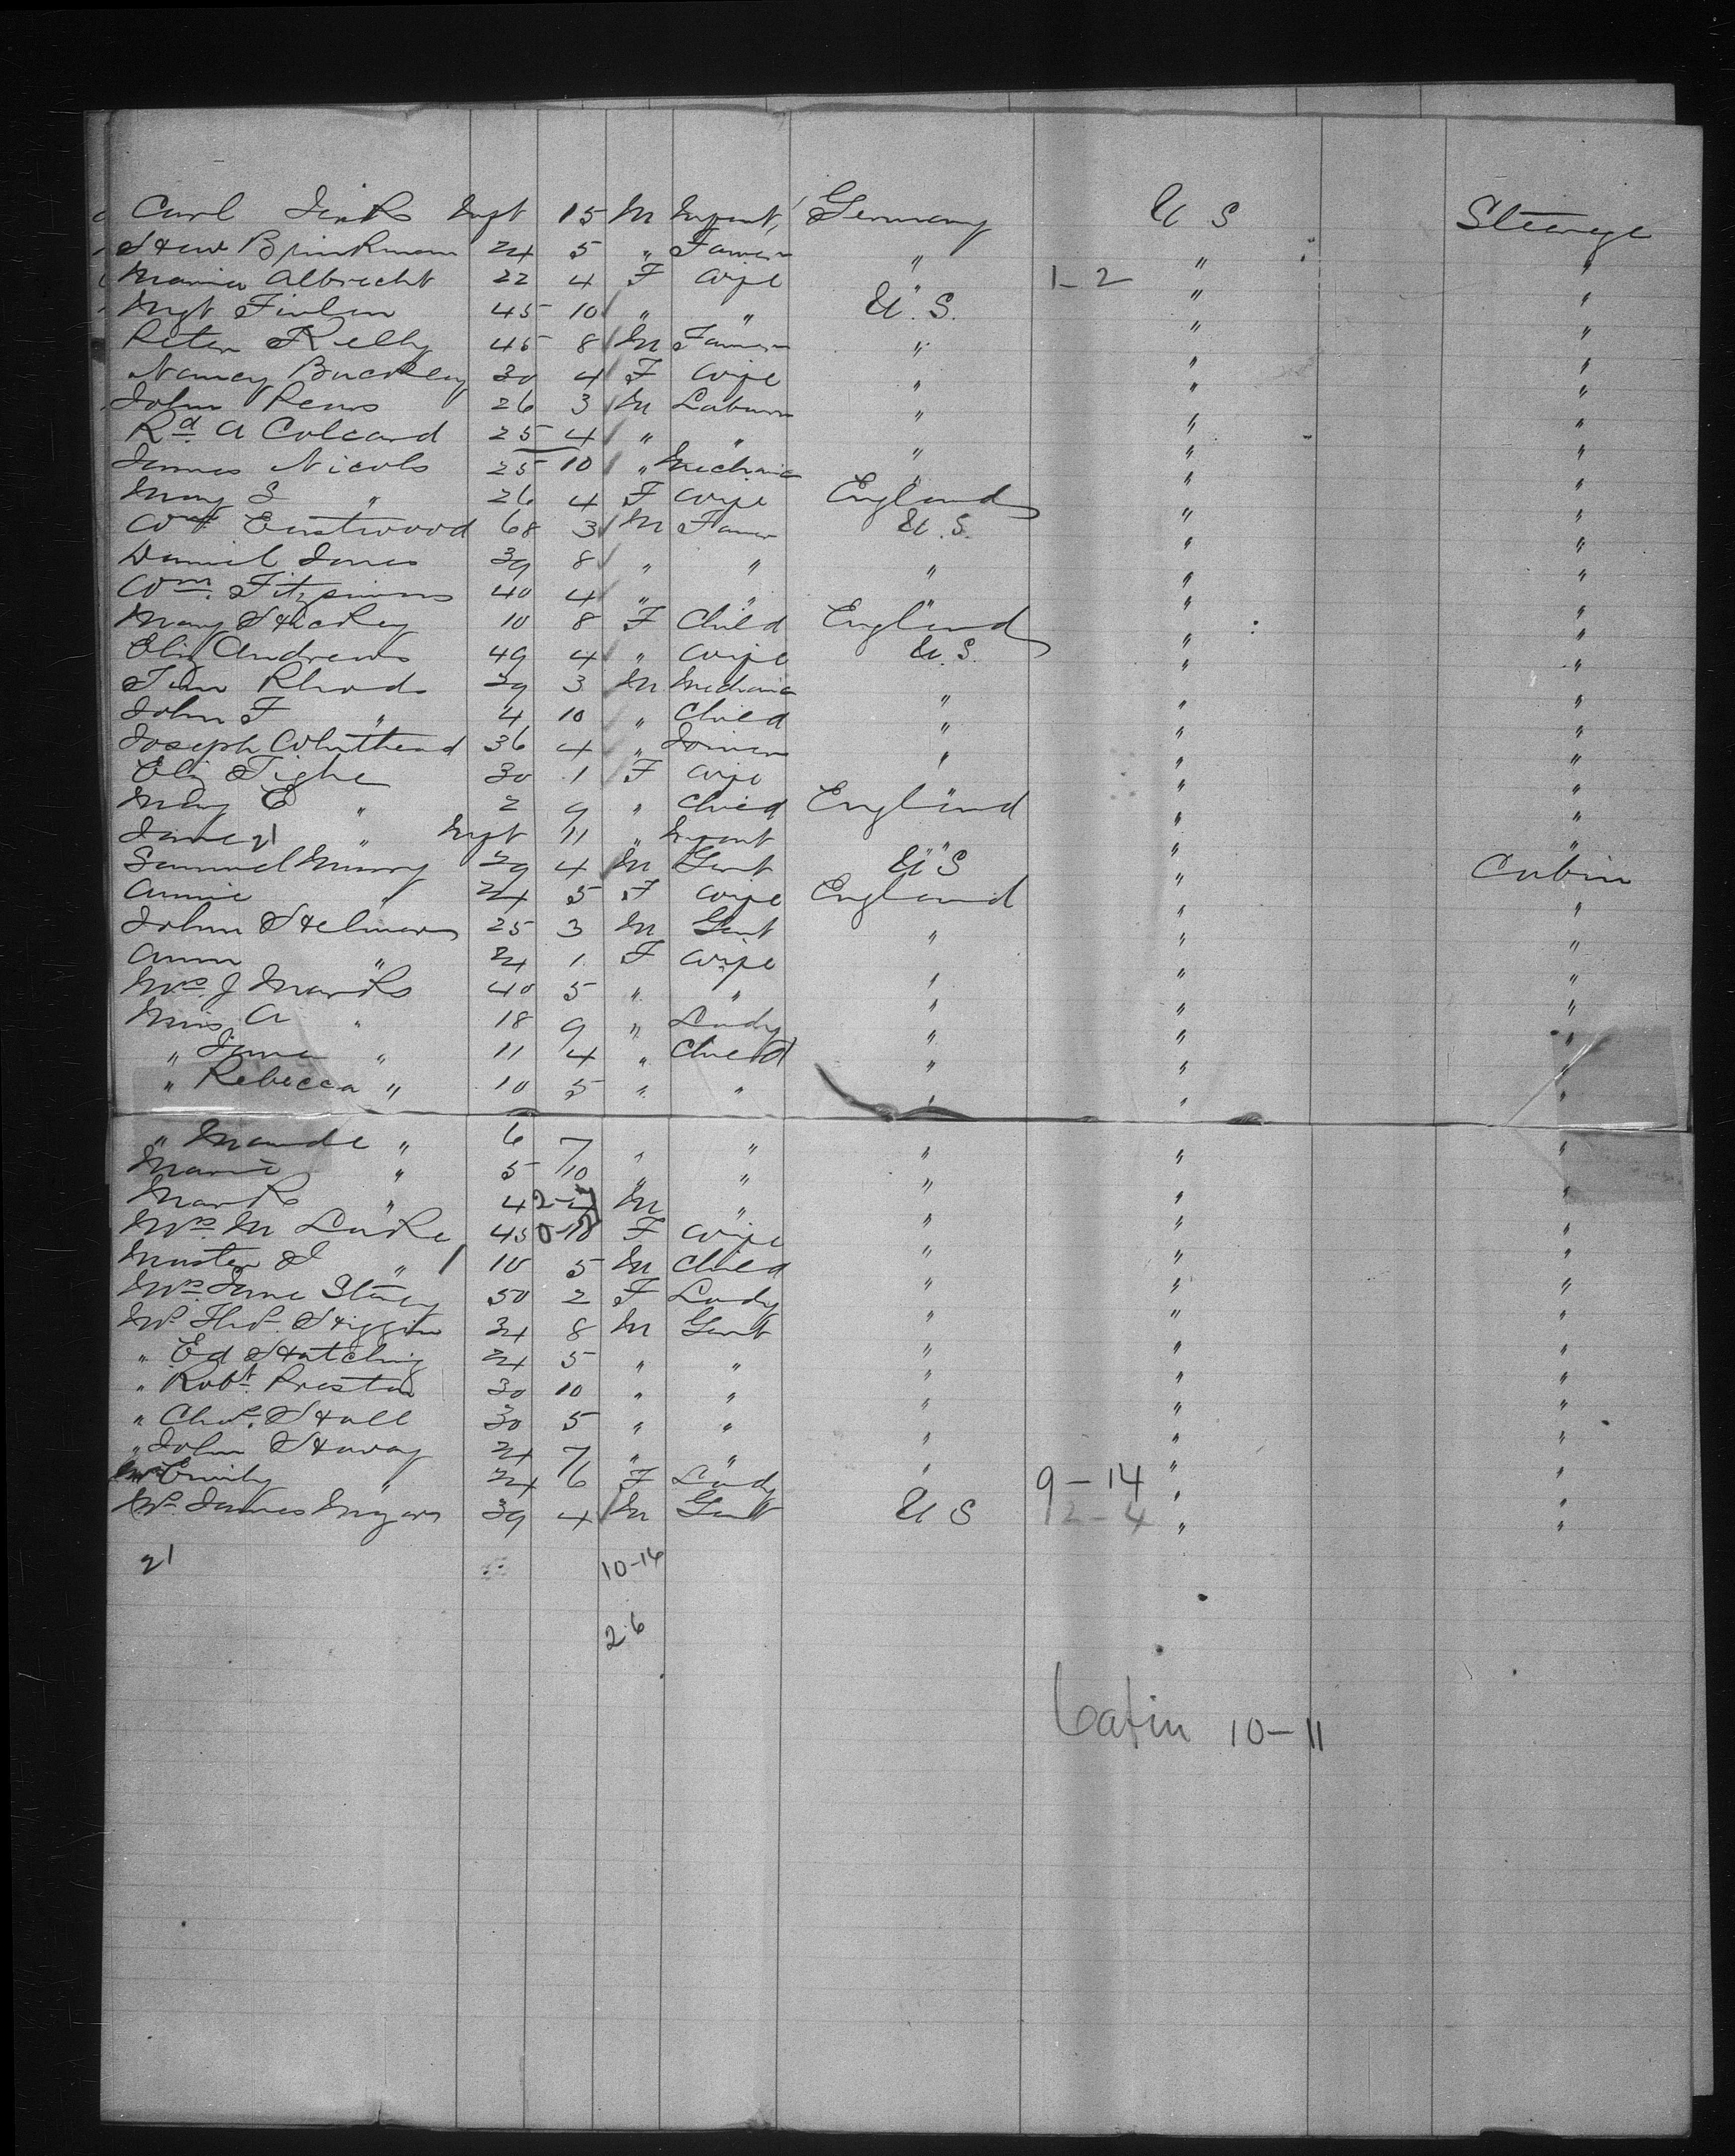 Carl Jinks Inft 15 M Infant Germany U S Steerage
Henr Brinkman 24 5 " Farmer " " "
Maria Albrecht 22 4 F Wife " 1-2 " "
Mgt Finlen 45 10 " " U.S. " "
Peter Kelly 45 8 M Farmer " " "
Nancy Buckley 30 4 F Wife " " "
John Rens 26 3 M Laburer " " "
Rd. A Colcard 25 4 " " " " "
James Nicols 25 10 " Mechanic " " "
Mary S " 26 4 F Wife England " "
Wm Eastwood 68 3 M Farmer U.S. " "
Daniel Jones 39 8 " " " " "
Wm. Fitzsimons 40 4 " " " " "
Mary Hickey 10 8 F Child England " "
Eliz Andrews 49 4 " Wife U.S. " "
Tim Rhods 39 3 M Mechanic " " "
John F " 4 10 " Child " " "
Joseph Whithead 36 4 " Joiner " " "
Eliz Tighe 30 1 F Wife " "
Mary E " 2 9 " Child England " "
Jane 21 " Inft 11 " Infant " " "
Samuel Murry 29 4 M Gent U S " Cabin
Annie " 24 5 F Wife England " "
John Helmers 25 3 M Gent " " "
Ann " 24 1 F Wife " "
Mrs. J Marks 40 5 " " " " "
Miss A " 18 9 " Lady " " "
" Jane " 11 4 " Child " " "
" Rebecca " 10 5 " " " " "
" Maude " 6 7 " " " " "
Marie " 5 10 " " " " "
Mark " 4 2-4 M " " " "
Mrs. M Lake 45 0-10 F Wife " " "
Master J " 10 5 M Child " " "
Mrs. Jane 50 2 F Lady " " "
Mr. Thos. Higgins 34 8 M Gent " " "
" Ed Hatching 24 5 " " " " "
" Robt. Preston 30 10 " " " " "
" Chas. Hall 30 5 " " " " "
" John Haway 24 7 " " " " "
Mrs Emily " 24 6 F Lady " 9-14 " "
Mr. James Mygars 39 4 M Gent U S 12-4 " "
21 10-16
2.6
Cabin 10-11